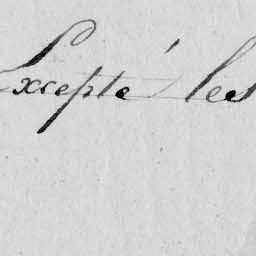 Excepté les